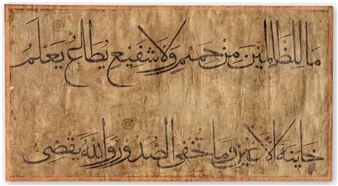 ما للظالمين من حميم ولا شفيع يطاع يعلم
خاينة الاعين وما تخفى الصدور والله يقضى